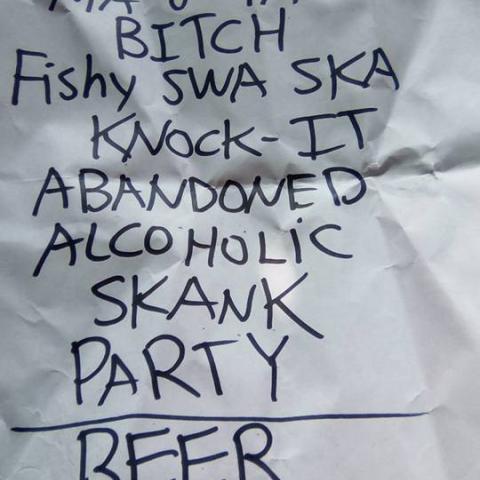 BITCH
Fishy SWA SKA
KNOCK-IT
ABANDONED
ALCOHOLIC
SKANK
PARTY
BEER